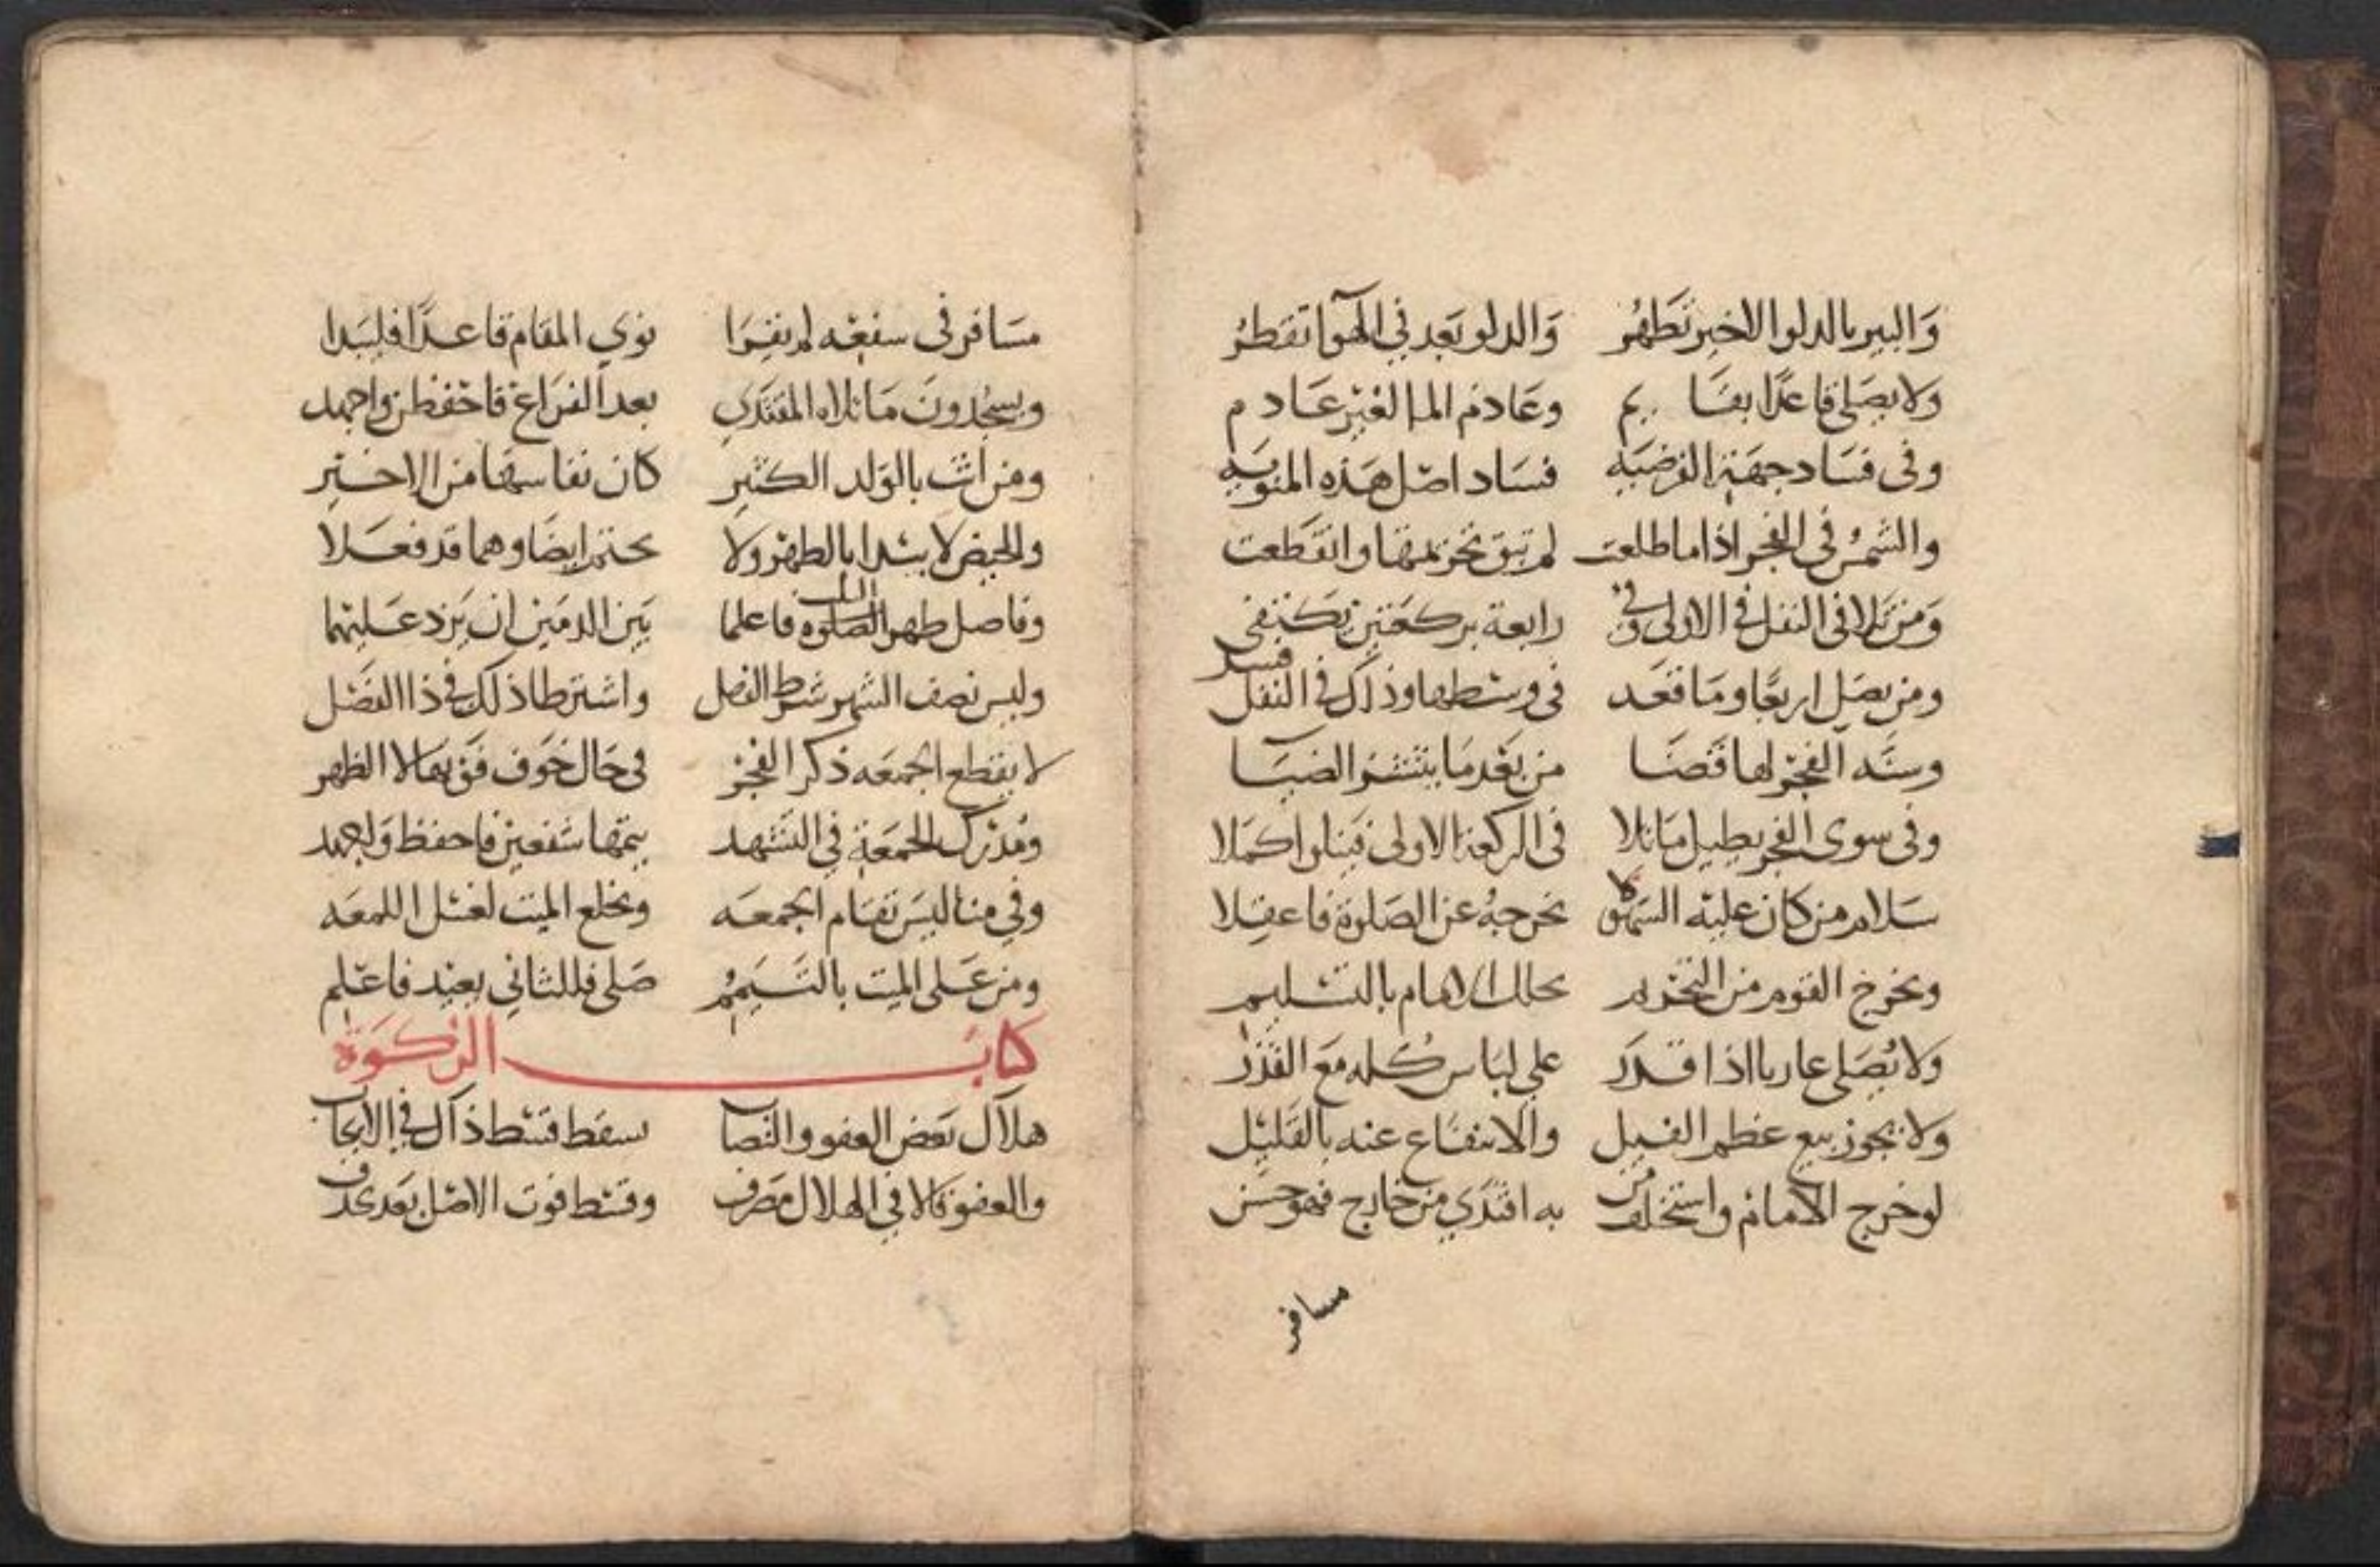 وَالبير بالدلو الاخير تَطهُر وَالدلو بَعد في الهوآ تقطرُ
وَلا يصَلى قاعدًا بقَا يم وعَادمُ الما لغَيْر عَادم
وفى فسَاد جهَة الفرضيَه فسَاد اصْل هَذه المنويَه
والشمسُ فى الفجر اذا ما طلعت لم تبق تحريمتها وانقَطعت
وَمَن تَلا فى النفل في الاولى وفي رابعة بركعَتين تكتفى
ومن يصَل اربعًا ومَا قعَد فى وسْطها وذاك في النفل فسد
وسنَّه الفجْر لها قَضَا من بَعْد مَا ينتشرُ الضيَا
وفى سوى الفجر يطيل مَا تلا فى الركعة الاولى
سَلام من كان عليْه السَهو لا نخرجهُ عن الصَلوة فاعقلا
ونخرج القوم من التحْريم تحلل الامام بالتسْليم
وَلا يُصَلى عاريا اذا قدَر على لبَاس كُله مَعَ القذَر
وَلا يجوز بيع عظم الفيل والانتفَاع عنه بالقَليْل
لو خرج الامامُ واستخلف من به اقتدَي من خارج فهو حسَن
مسافر
مسَافر فى سفينْه لم يقِرَا نوي المقَام قاعدًا
ويسجُدونَ مَا تلاه المقتَدي بعد الفرَاغ فاحْفظن واجهد
ومن اتت بالوَلد الكثير كان نفاسهَا من الاخير
والحيض لا يبْدا بالطهْر ولا يختم ايضَا وهما قد فعَلا
وفاصل طهر الصلوة فاعلما بَين الدمَين ان يَزد عَليْهما
وليس نصف الشهر شرط الفصل واشترطا ذلك في ذا الفصْل
لا يقطع الجمعَه ذكر الفجْر فى حَال خَوف فَوتهَا لا الظهر
ومُدْرك الجمعَة في التشهد يتمها شفعين فاحفظ وَاجهد
وفي منا ليسَ تقَام الجمعَه ونخلع الميت لغسْل اللمعَه
ومن عَلى الميت بالتَيَممُ صَلى فللثاني يعيْد فاعْلم
كتابَ الزكوَة
هلاك بَعض العفو والنصاب يسقط قسْط ذاك في الايجاب
والعفو قالا في الهلال مَصْرف وقسْط فوت الاصْل بَعد يحذف